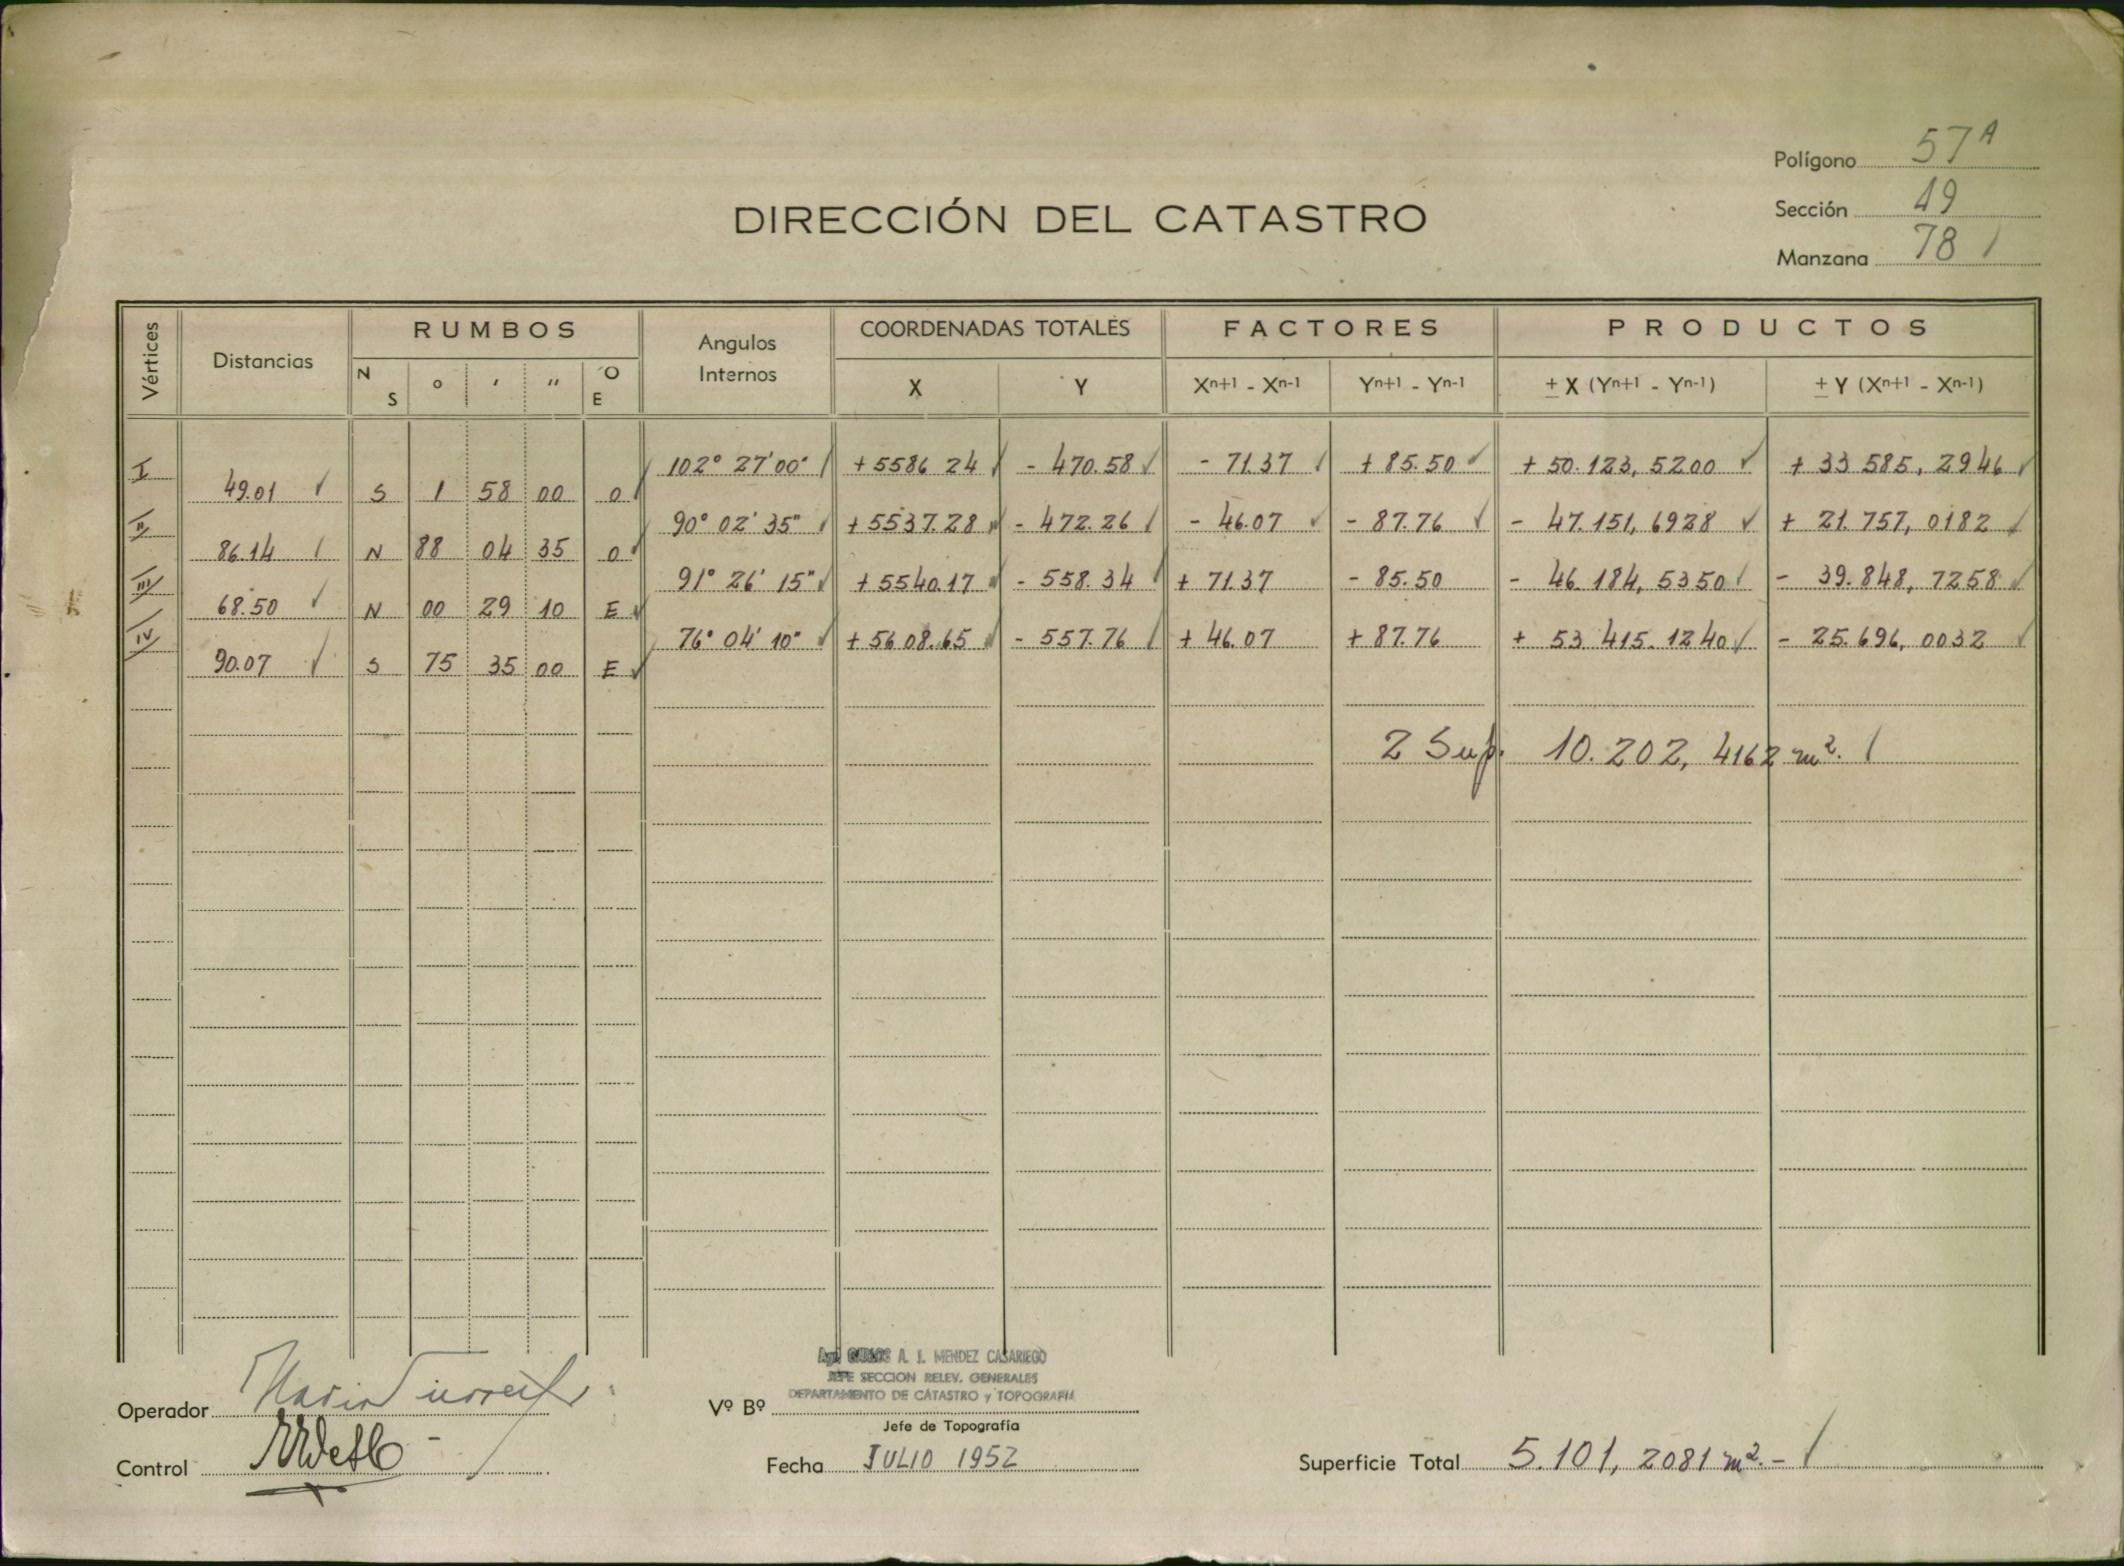 Polígono 57A
Sección 19
Manzana 78
DIRECCIÓN DEL CATASTRO
Vértices Distancias RUMBOS Angulos Internos COORDENADAS TOTALES FACTORES PRODUCTOS
N S o ' '' O E X Y Xn+1 - Xn-1 Yn+1 - Yn-1 ± X (Yn+1 - Yn-1) ± Y (Xn+1 - Xn-1)
I 102° 27' 00" +5586 24 - 470.58 - 71.37 + 85.50 + 50.123, 5200 + 33 585, 2946
49.01 S 1 58 00 O
II 90° 02' 35" +5537.28 - 472.26 - 46.07 - 87.76 - 47.151, 6928 + 21 757, 0182
86.14 N 88 04 35 O
III 91° 26' 15" +5540.17 - 558.34 + 71.37 - 85.50 - 46.184, 5350 - 39.848, 7258
68.50 N 00 29 10 E
IV 76° 04' 10" +5608.65 - 557.76 + 46.07 + 87.76 + 53.415.1240 - 25.696, 0032
90.07 S 75 35 00 E
2 Sup. 10.202, 4162 m².
A. J. MENDEZ CASARIEGO
JEFE SECCION RELEV. GENERALES
DEPARTAMENTO DE CATASTRO y TOPOGRAFIA
Operador
Vº Bº
Jefe de Topografía
Control
Fecha JULIO 1952
Superficie Total 5.101, 2081 m².-